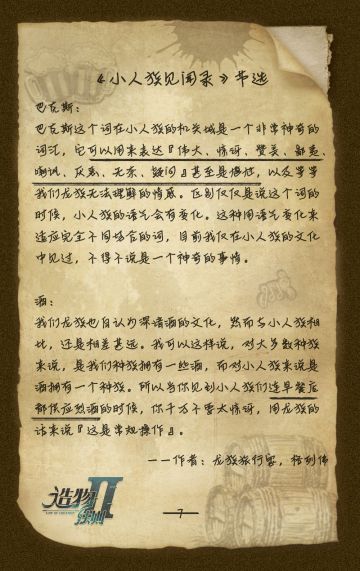 《小人族见闻录》节选
巴克斯：
巴克斯这个词在小人族的机关城是一个非常神奇的
词汇，它可以用来表达『伟大、惊讶、赞美、鄙夷、
嘲讽、厌恶、无奈、疑问』甚至是悟怔，以及等等
我们龙族无法理解的情感。区别仅仅是说这个词的
时候，小人族的语气会有变化。这种用语气变化来
适应完全不同场合的词，目前我仅在小人族的文化
中见过，不得不说是一个神奇的事情。
酒：
我们龙族也自认为深谙酒的文化，然而与小人族相
比，还是相差甚远。我可以这样说，对大多数种族
来说，是我们种族拥有一些酒，而对小人族来说是
酒拥有一个种族。所以当你见到小人族们连早餐后
都供应烈酒的时候，你千万不要太惊讶，用龙族的
话来说『这是常规操作』。
——作者：龙族旅行家，格列佛
造物法则II
LAW OF CREATION
7